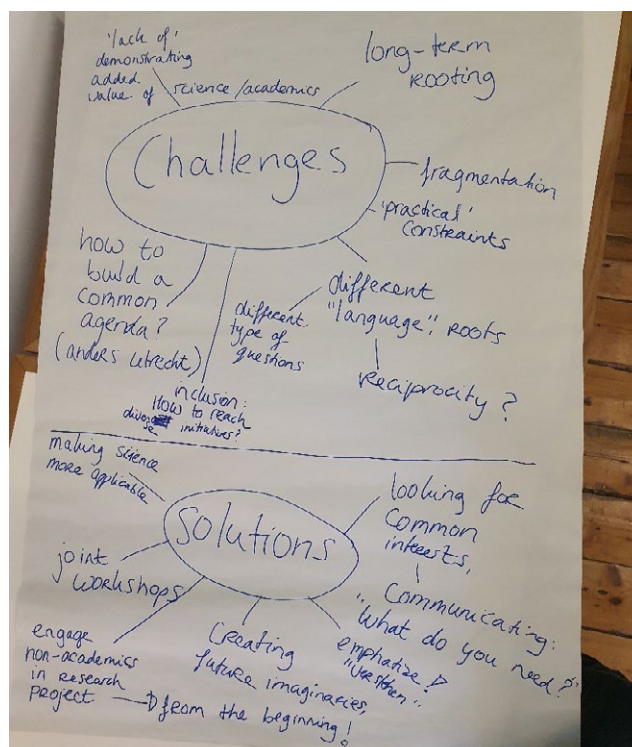 'lack of'
demonstrating
added
value of science/academics
long-term
rooting
Challenges
fragmentation
'practical'
constraints
how to
build a
common
agenda?
(anders utrecht)
different
"language", roots
different
type of
questions
reciprocity?
inclusion:
How to reach
diverse initiatives?
making science
more applicable
Solutions
looking for
common
interests,
Communicating:
"What do you need?"
joint
workshops
engage
non-academics
in research
project
from the beginning!
Creating
future imaginaries,
emphatize!